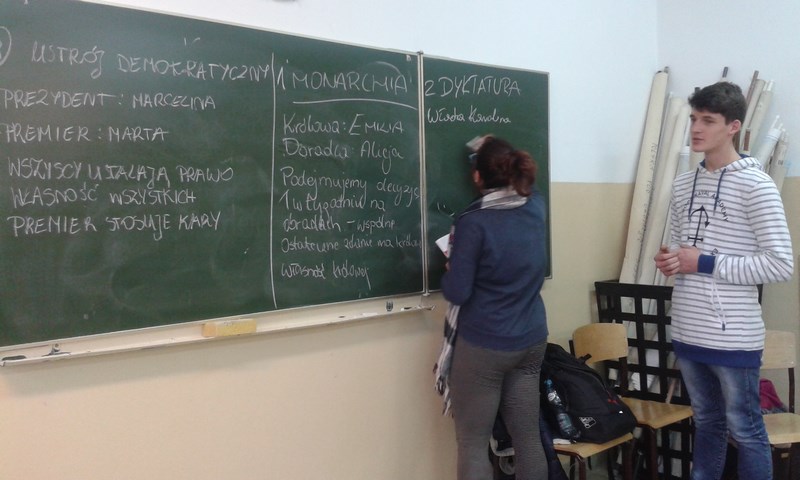 3)
USTRÓJ DEMOKRATYCZNY
PREZYDENT: MARCELINA
PREMIER: MARTA
WSZYSCY USTALAJĄ PRAWO
WŁASNOŚĆ WSZYSTKICH
PREMIER STOSUJE KARY
1 MONARCHIA
Królowa: EMILIA
Doradca: Alicja
Podejmujemy decyzje
1 w tygodniu na
obradach - wspólne
Ostateczne zdanie ma królowa
własność królowej
2 DYKTATURA
Władza Karolina